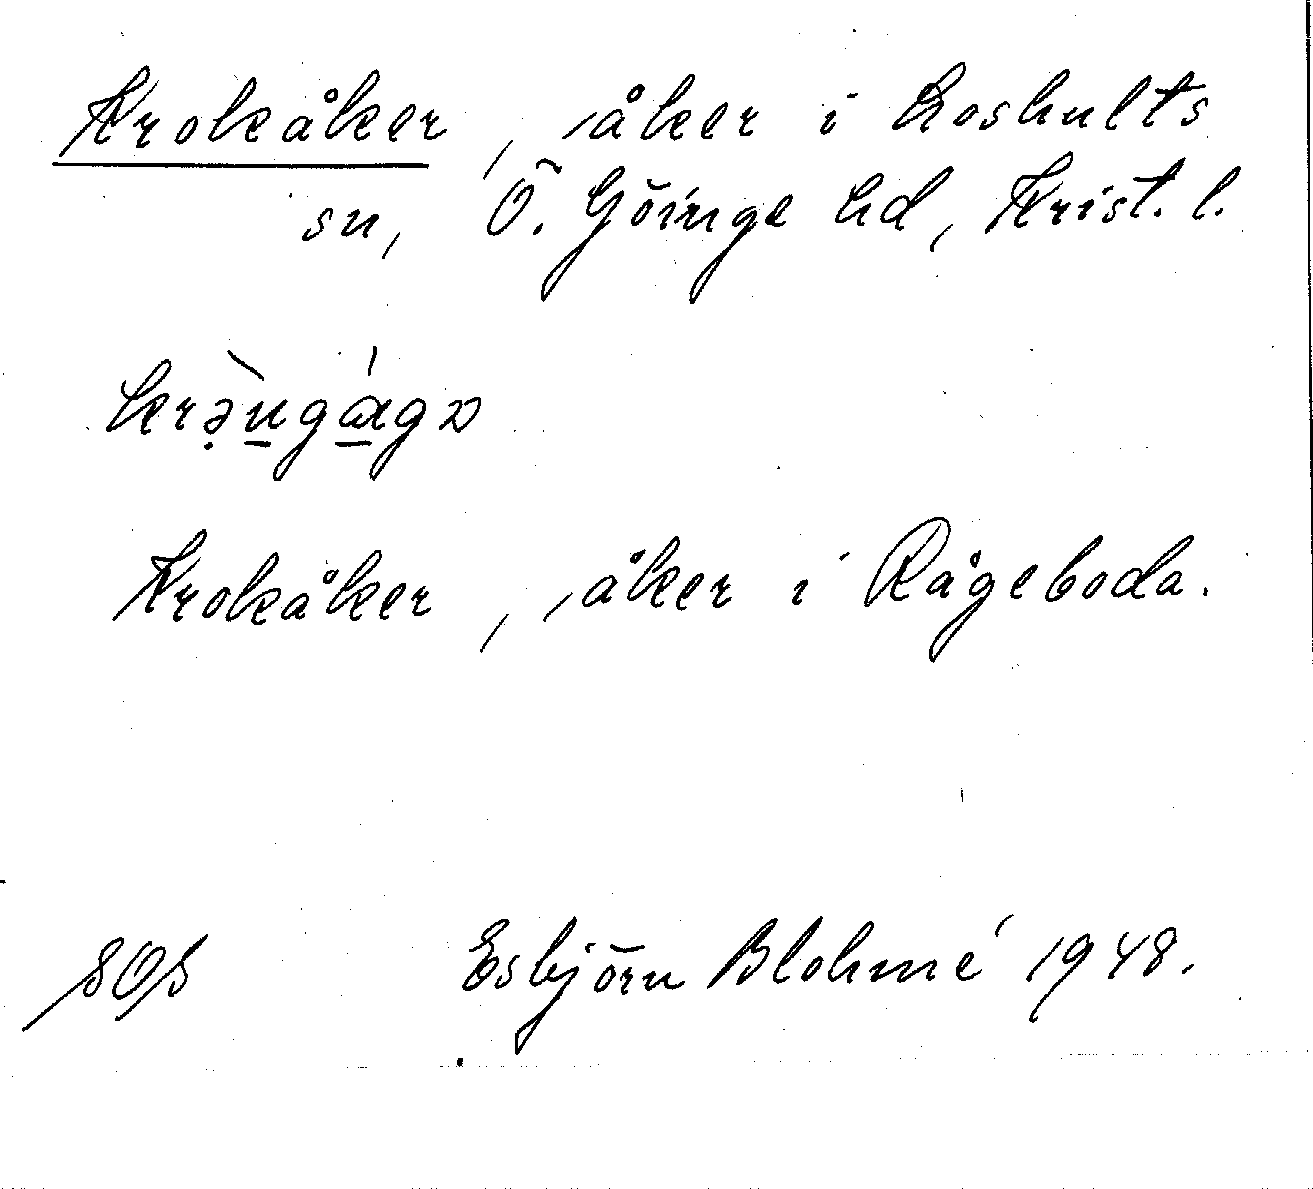 Krokåker, åker i Loshults
sn, Ö. Göinge hd, Krist. l.
Krokåker, åker i Rågeboda.
SOS Esbjörn Blohmé 1948.